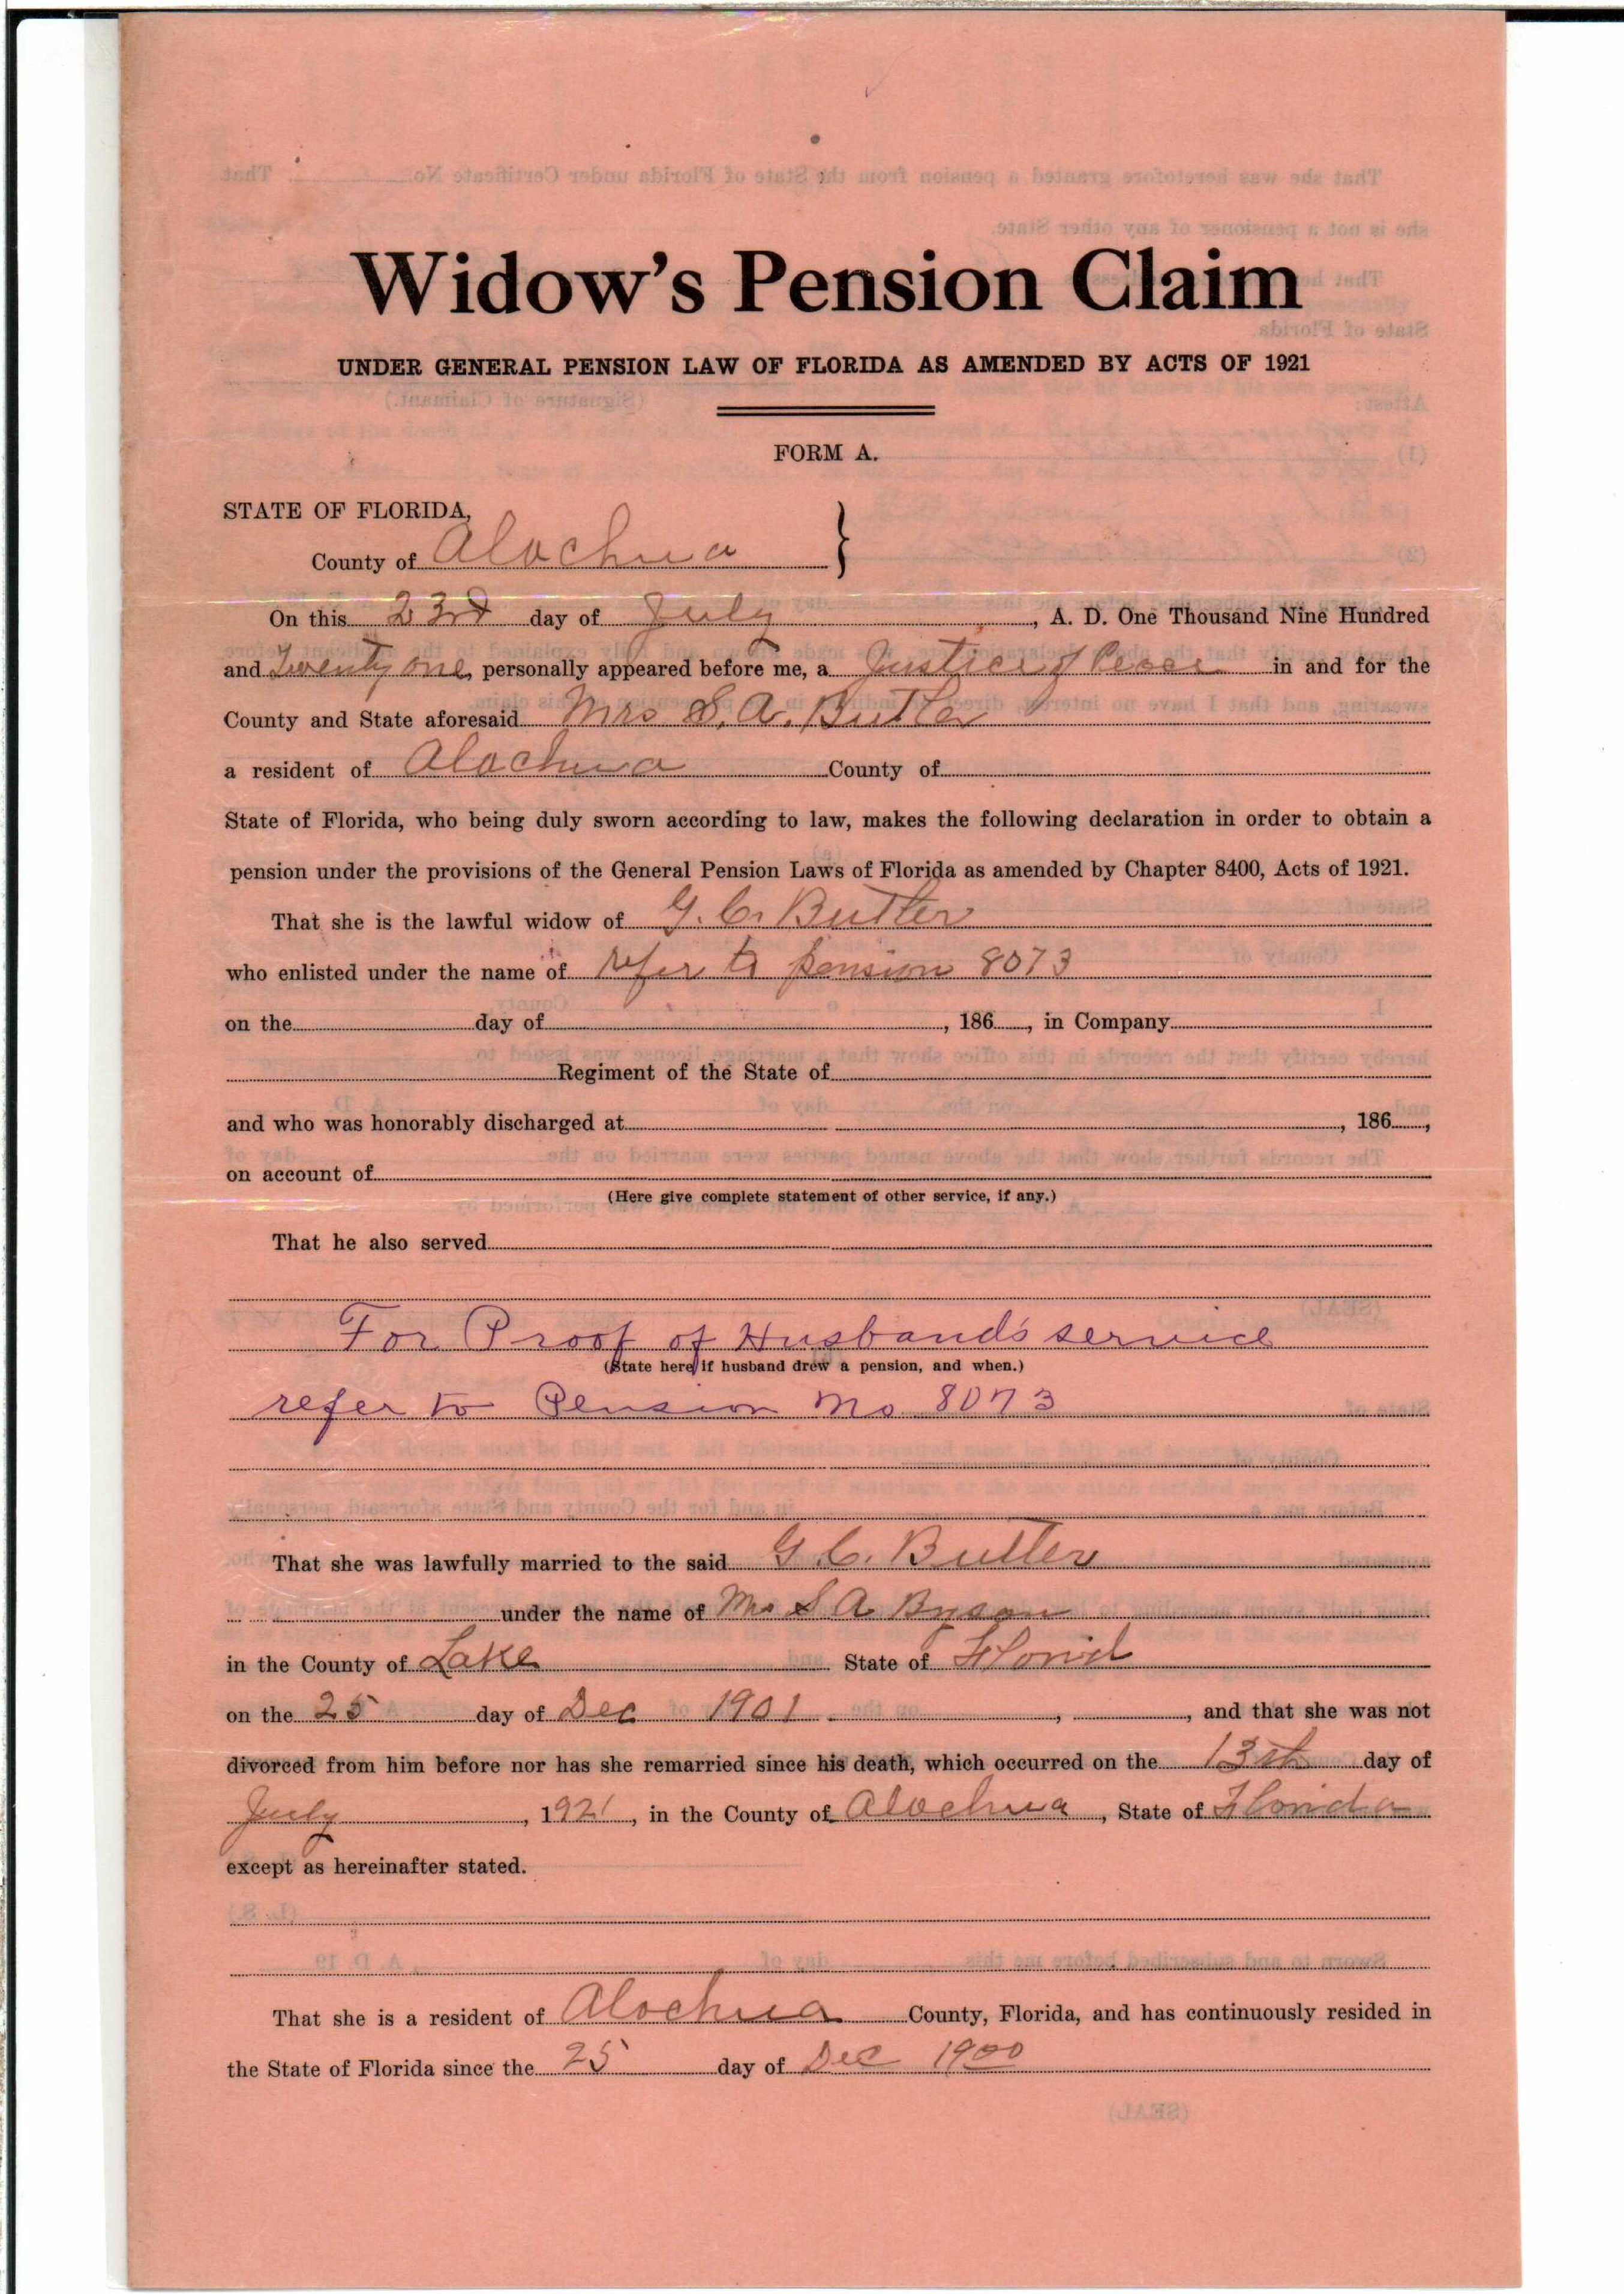 Widow's Pension Claim
UNDER GENERAL PENSION LAW OF FLORIDA AS AMENDED BY ACTS OF 1921
FORM A.
STATE OF FLORIDA,
County of Alachua }
On this 23rd day of July, A. D. One Thousand Nine Hundred
and Twenty one personally appeared before me, a Justice of Peace in and for the
County and State aforesaid Mrs S. A. Butler
a resident of Alachua County of
State of Florida, who being duly sworn according to law, makes the following declaration in order to obtain a
pension under the provisions of the General Pension Laws of Florida as amended by Chapter 8400, Acts of 1921.
That she is the lawful widow of G. C. Butler
who enlisted under the name of refer to pension 8073
on the day of , 186 , in Company
Regiment of the State of
and who was honorably discharged at , 186 ,
on account of
(Here give complete statement of other service, if any.)
That he also served
For Proof of Husband's service
(State here if husband drew a pension, and when.)
refer to Pension No 8073
That she was lawfully married to the said G. C. Butler
under the name of Mrs S A
in the County of Lake State of Florid
on the 25 day of Dec 1901 , , and that she was not
divorced from him before nor has she remarried since his death, which occurred on the 13th day of
July , 1921, in the County of Alachua, State of Florida
except as hereinafter stated.
That she is a resident of Alochua County, Florida, and has continuously resided in
the State of Florida since the 25 day of Dec 1900